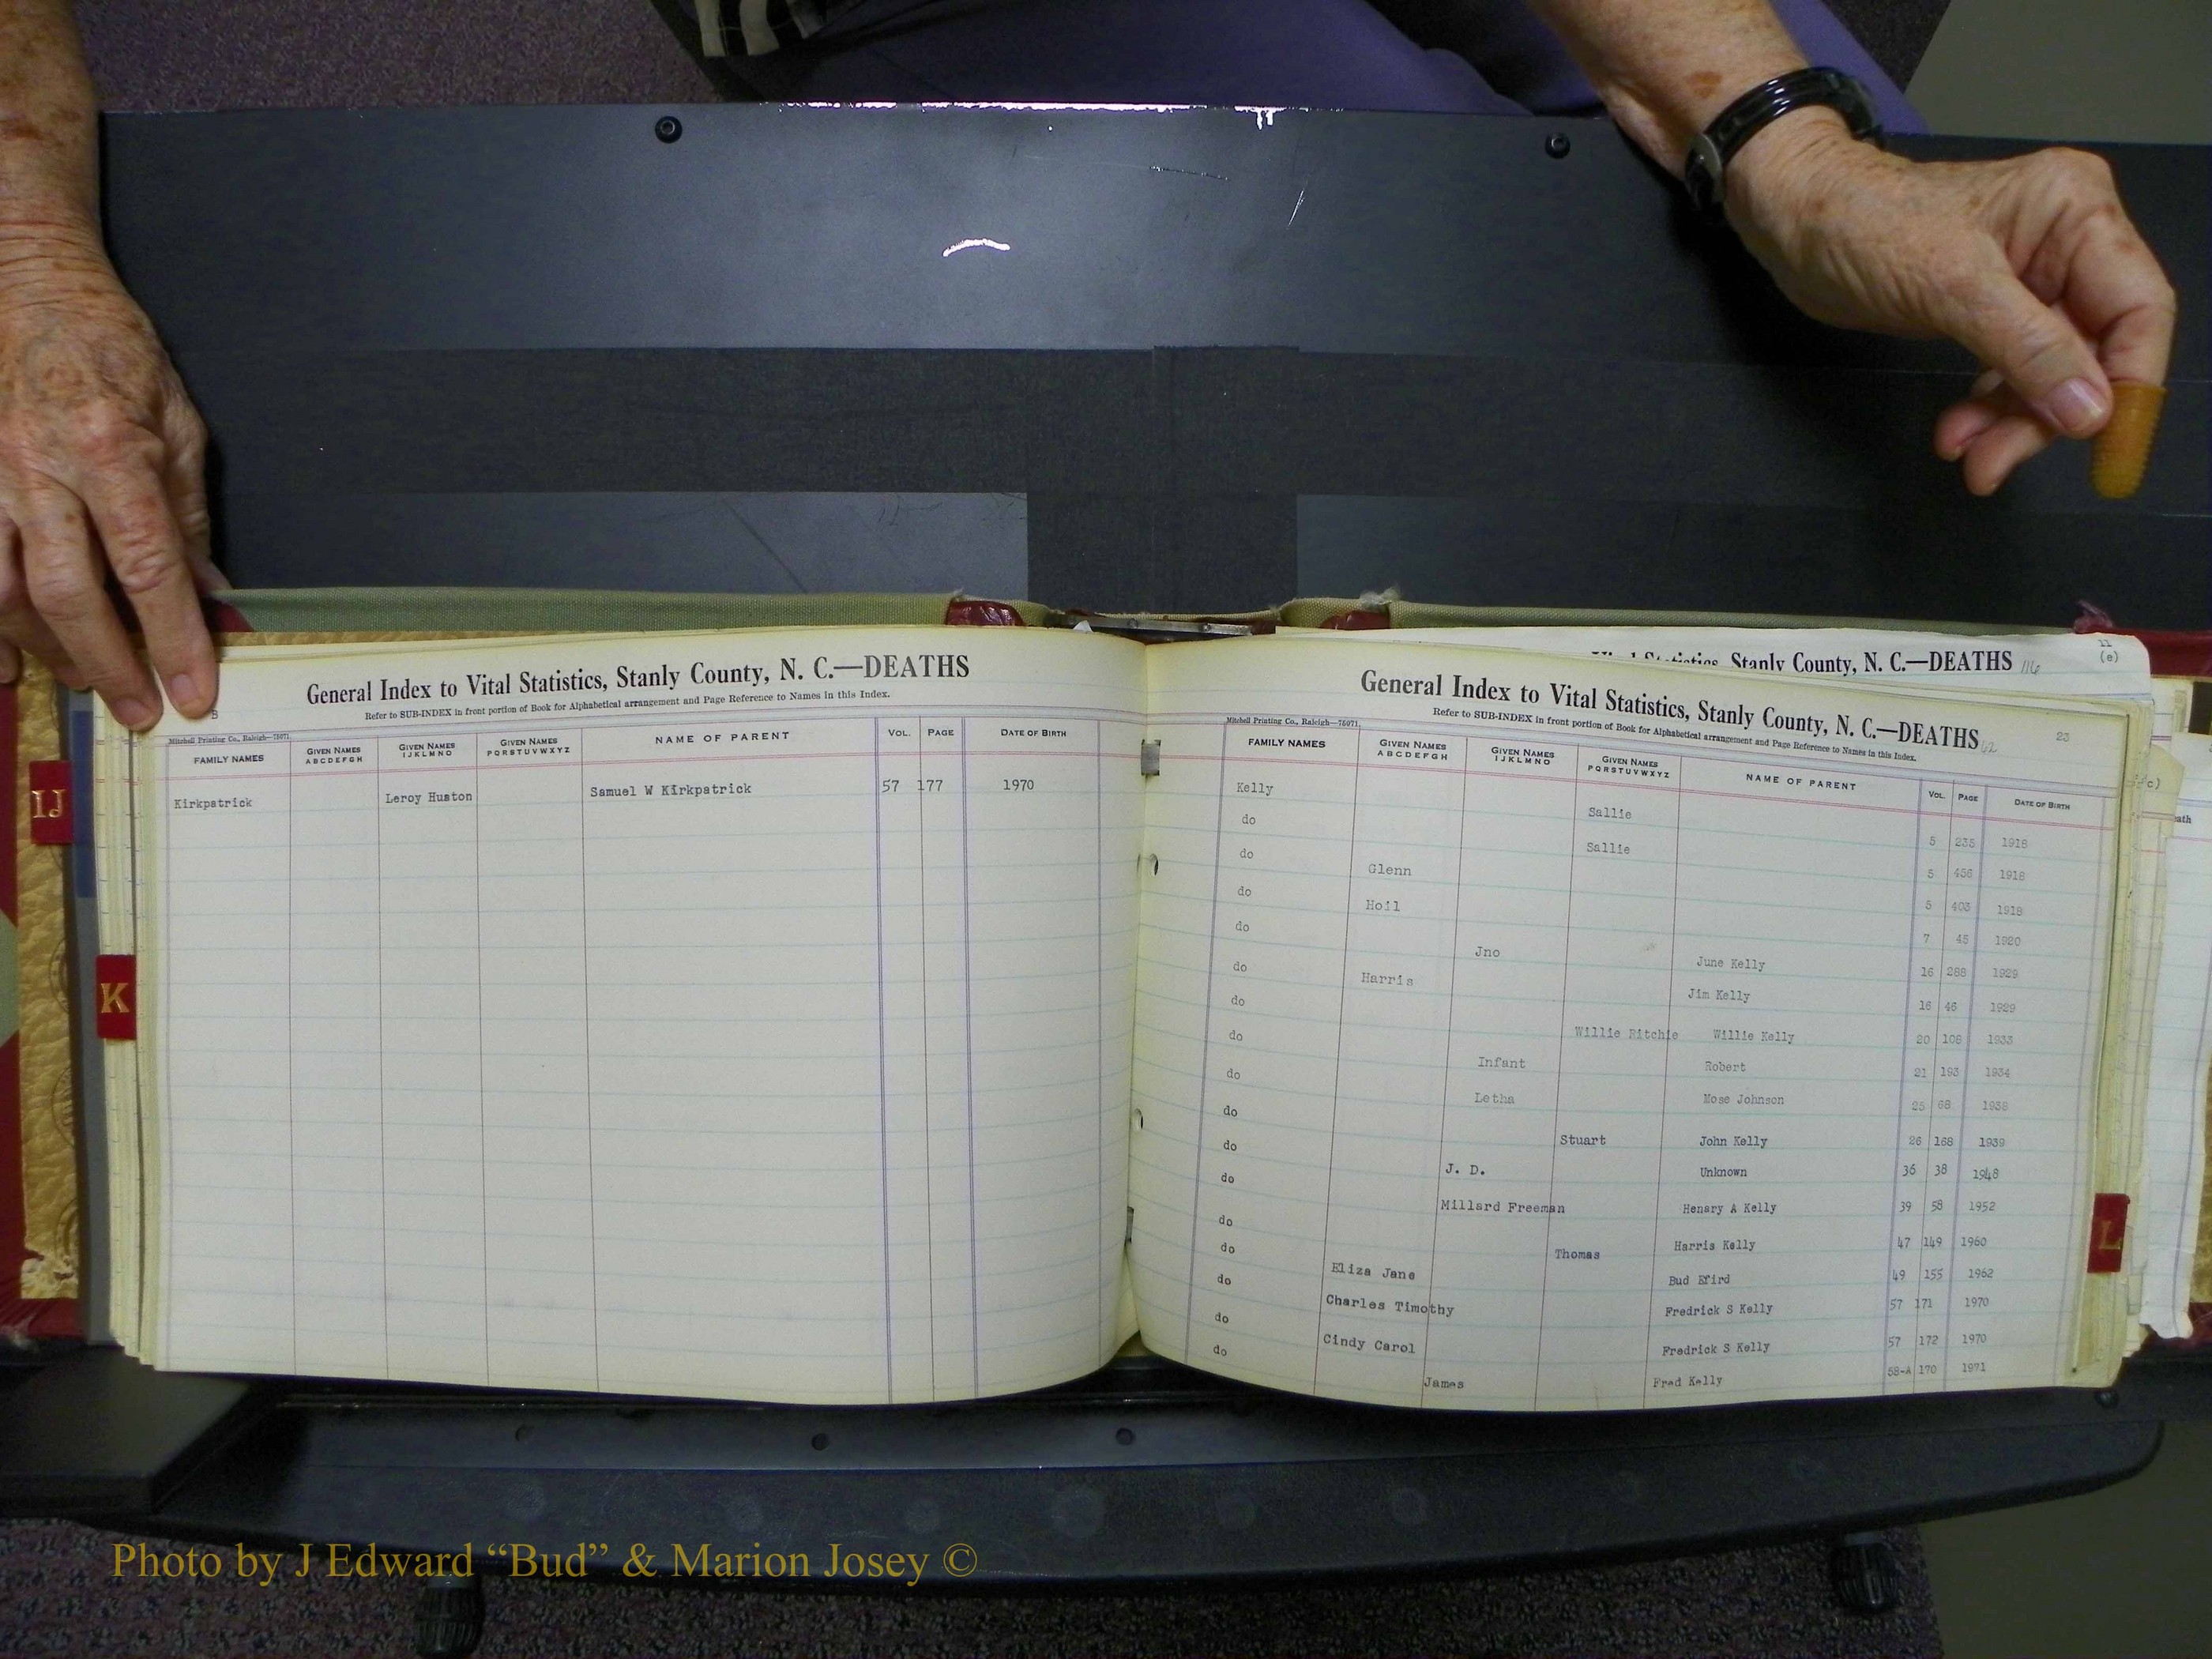 General Index to Vital Statistics, Stanly County, N. C.—DEATHS
Refer to SUB-INDEX in front portion of Book for Alphabetical arrangement and Page Reference to Names in this Index.
B
Mitchell Printing Co., Raleigh—75071
FAMILY NAMES GIVEN NAMES ABCDEFGH GIVEN NAMES IJKLMNO GIVEN NAMES PQRSTUVWXYZ NAME OF PARENT VOL. PAGE DATE OF BIRTH
Kirkpatrick Leroy Huston Samuel W Kirkpatrick 57 177 1970
IJ
K
Stanly County, N. C.—DEATHS 116
11
(e)
General Index to Vital Statistics, Stanly County, N. C.—DEATHS 62
23
Refer to SUB-INDEX in front portion of Book for Alphabetical arrangement and Page Reference to Names in this Index.
Mitchell Printing Co., Raleigh—75071
FAMILY NAMES GIVEN NAMES ABCDEFGH GIVEN NAMES IJKLMNO GIVEN NAMES PQRSTUVWXYZ NAME OF PARENT VOL. PAGE DATE OF BIRTH
Kelly Sallie 5 235 1918
do Sallie 5 456 1918
do Glenn 5 403 1918
do Hoil 7 45 1920
do Jno June Kelly 16 288 1929
do Harris Jim Kelly 16 46 1929
do Willie Ritchie Willie Kelly 20 108 1933
do Infant Robert 21 193 1934
do Letha Mose Johnson 25 68 1938
do Stuart John Kelly 26 168 1939
do J. D. Unknown 36 38 1948
do Millard Freeman Henary A Kelly 39 58 1952
do Thomas Harris Kelly 47 149 1960
do Eliza Jane Bud Efird 49 155 1962
do Charles Timothy Fredrick S Kelly 57 171 1970
do Cindy Carol Fredrick S Kelly 57 172 1970
do James Fred Kelly 58-A 170 1971
L
Photo by J Edward “Bud” & Marion Josey ©